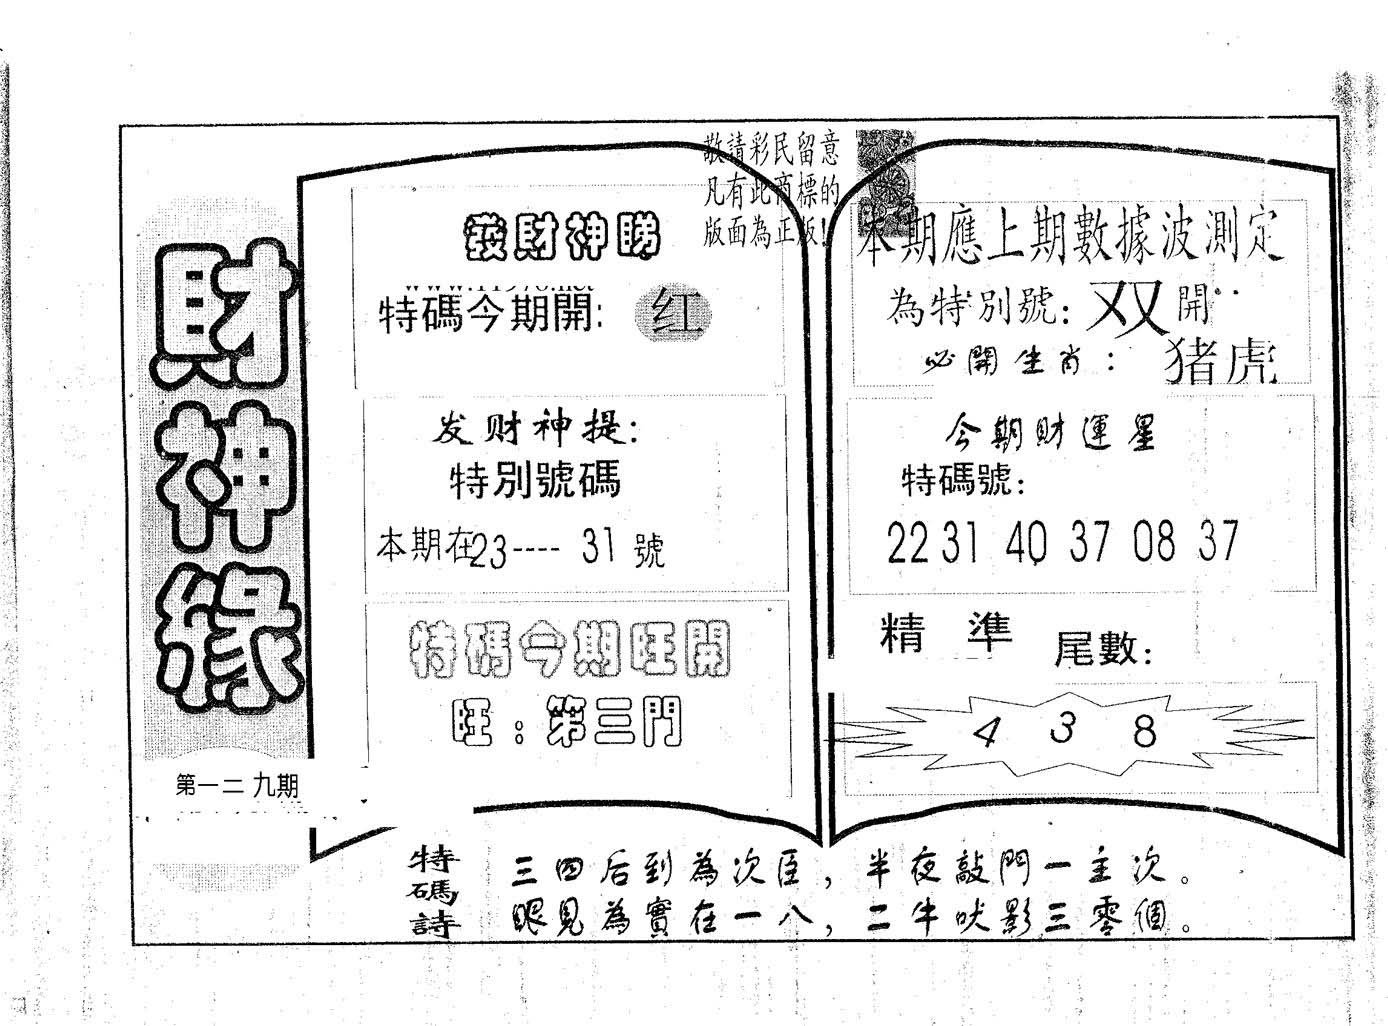 財神緣
第一二九期
敬請彩民留意
凡有此商標的
版面為正版!
發財神睇
特碼今期開:
红
发财神提:
特別號碼
本期在23---- 31 號
特碼今期旺開
旺:第三門
本期應上期數據波測定
為特別號: 双 開
必開生肖: 猪虎
今期財運星
特碼號:
22 31 40 37 08 37
精 準 尾數:
4 3 8
特碼詩
三四后到為次臣,半夜敲門一主次。
眼見為實在一八,二牛吠影三零個。